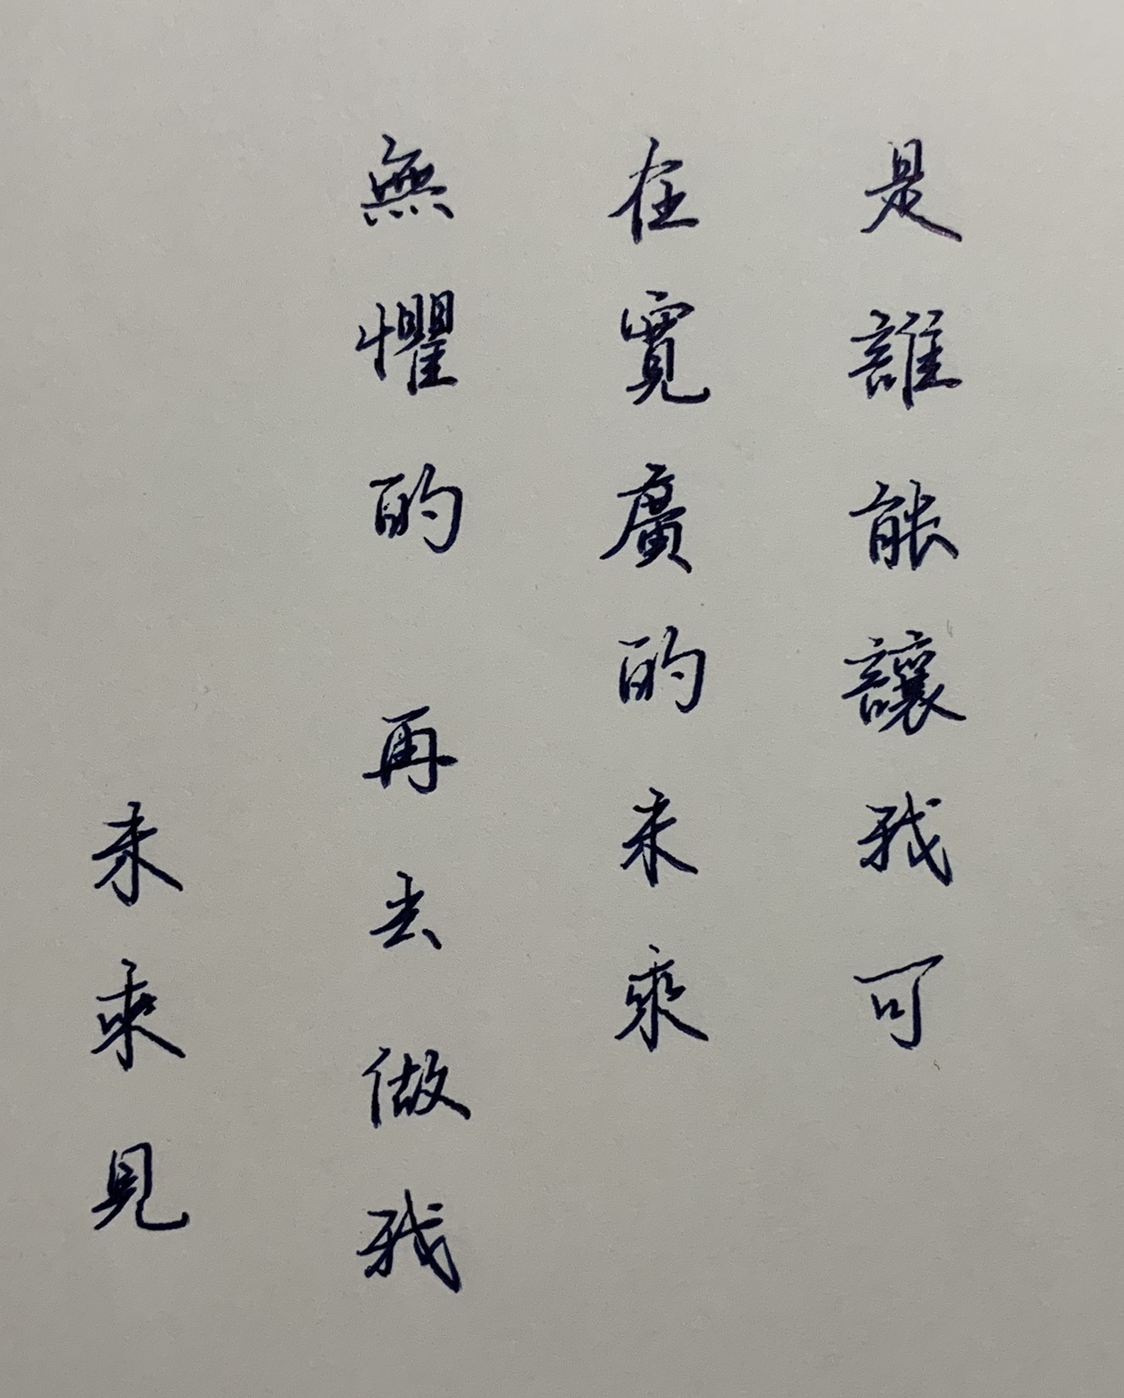 是誰能讓我可
在寬廣的未來
無懼的 再去做我
未來見